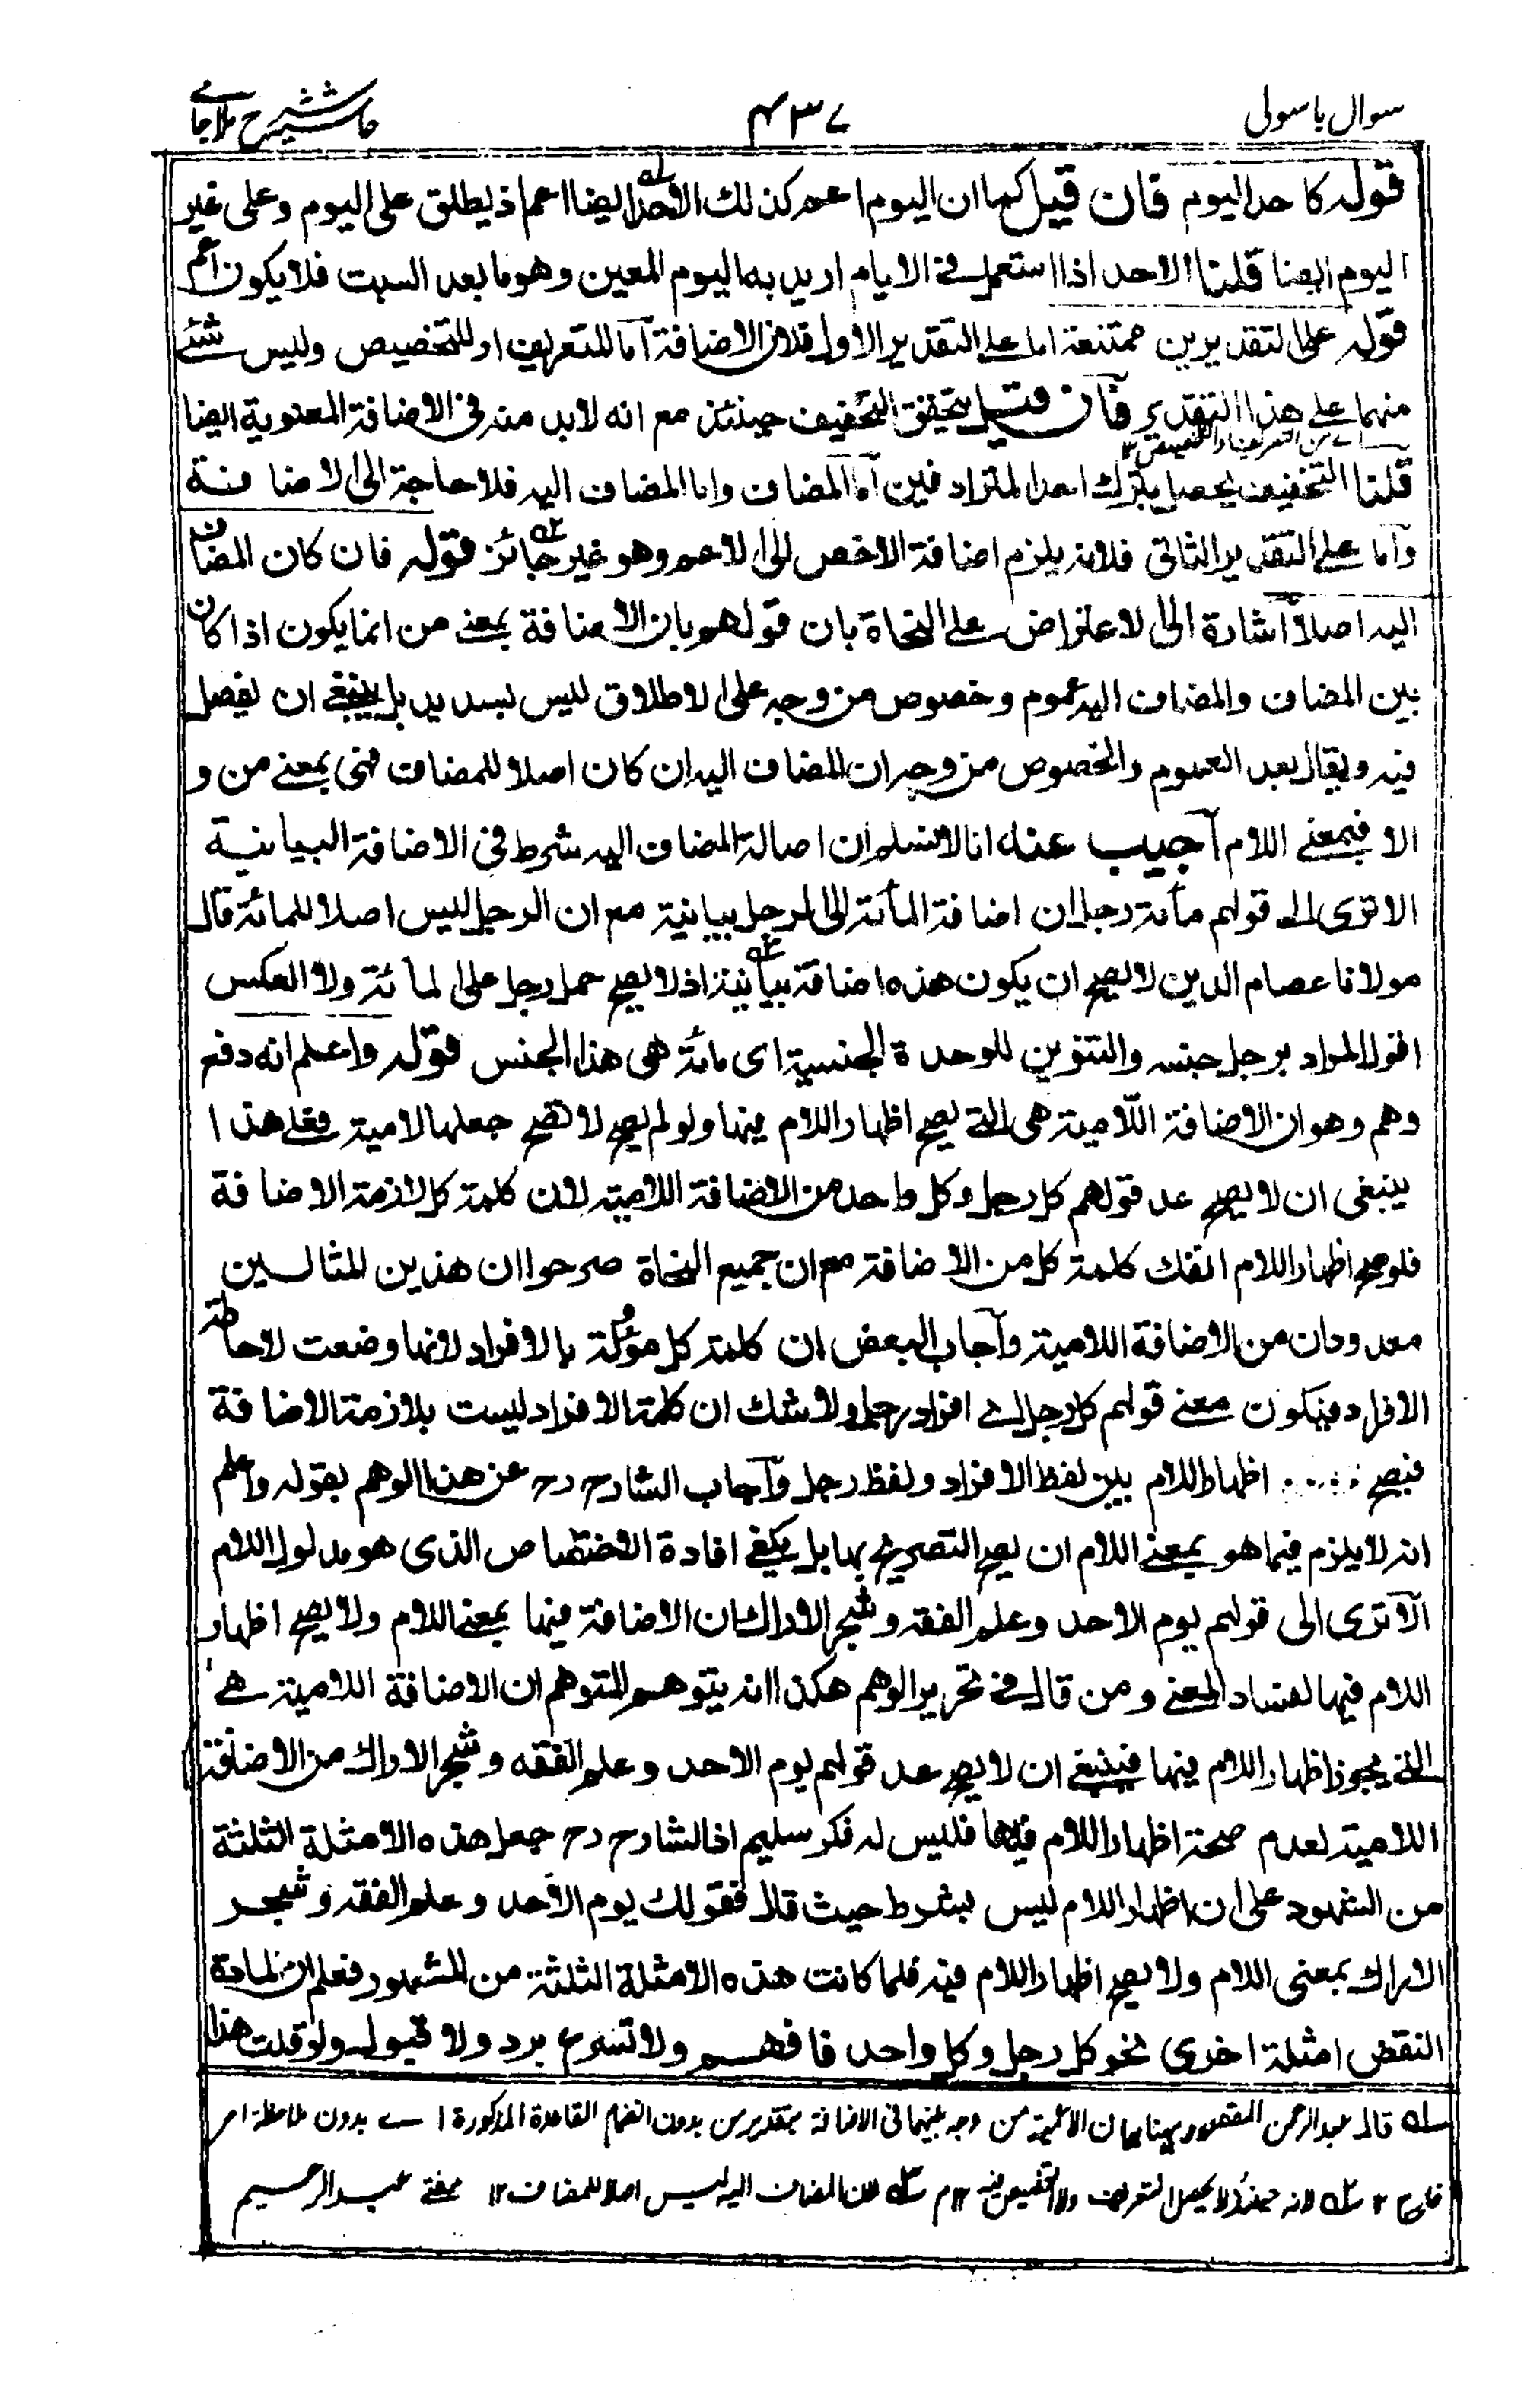 سوال باسولی
۴۳۷
حاشیہ شرح ملاجامے
قولہ کاحد الیوم فان قیل کما ان الیوم اعم کذلك الاحد ایضا اعم اذ یطلق علی الیوم وعلی غیر
الیوم ایضا قلنا الاحد اذا استعمل فی الایام ارید بہ الیوم المعین وهو ما بعد السبت فلا یکون اعم
قولہ علی التقدیرین ممتنعة اما علی التقدیر الاول فلان الاضافة اما للتعریف او للتخصیص ولیس شئے
منهما علی هذا التقدیر فان قیل یتحقق التخفیف حینئذ مع انه لابد منہ فی الاضافة المعنویة ایضا
اے من التعریف والتخصیص ۱۲
قلنا التخفیف یحصل بترك احد المترادفین اما المضاف واما المضاف الیہ فلا حاجة الی الاضافة
واما علی التقدیر الثانی فلانہ یلزم اضافة الاخص الی الاعم وهو غیر جائز قولہ فان کان المضاف
الیہ اصلا اشارة الی الاعتراض علی النحاة بان قولهم بان الاضافة بمعنے من انما یکون اذا کان
بین المضاف والمضاف الیہ عموم وخصوص من وجہ علی الاطلاق لیس بسدید بل ینبغے ان یفصل
فیہ ویقال بعد العموم والخصوص من وجہ ان المضاف الیہ ان کان اصلا للمضاف فهی بمعنے من و
الا فبمعنے اللام اجیب عنہ انا لا نسلم ان اصالة المضاف الیہ شرط فی الاضافة البیانیة
الا تری الی قولهم مائة رجل ان اضافة المائة الی الرجل بیانیة مع ان الرجل لیس اصلا للمائة قال
مولانا عصام الدین لا یصح ان یکون هذہ اضافة بیانیة اذ لا یصح حمل رجل علی المائة ولا العکس
اقول المراد برجل جنسہ والتنوین للوحدة الجنسیة ای مائة هی هذا الجنس قولہ واعلم انه دفع
وهم وهو ان الاضافة اللامیة هی التے یصح اظهار اللام فیها ولو لم یصح لا تصح جعلها لامیة فعلے هذا
ینبغی ان لا یصح عد قولهم کل رجل وکل واحد من الاضافة اللامیة لان کلمة کل لازمة الاضافة
فلو صح اظهار اللام انفك کلمة کل من الاضافة مع ان جمیع النحاة صرحوا ان هذین المثالین
معدودان من الاضافة اللامیة واجاب البعض ان کلمة کل مؤلة بالافراد لانها وضعت لاحاطة
الافراد فیکون معنے قولهم کل رجل اے افراد رجل ولا شك ان کلمة الافراد لیست بلازمة الاضافة
فیصح اظهار اللام بین لفظ الافراد ولفظ رجل واجاب الشارح رح عن هذا الوهم بقولہ واعلم
انہ لا یلزم فیما هو بمعنے اللام ان یصح التصریح بها بل یکفے افادة الاختصاص الذی هو مدلول اللام
الا تری الی قولهم یوم الاحد وعلم الفقہ وشجر الاراك ان الاضافة فیها بمعنے اللام ولا یصح اظهار
اللام فیها لفساد المعنے ومن قال فے تحریر الوهم هکذا انہ یتوهم المتوهم ان الاضافة اللامیة هے
التے یجوز اظهار اللام فیها فینبغے ان لا یصح عد قولهم یوم الاحد وعلم الفقه وشجر الاراك من الاضافة
اللامیة لعدم صحة اظهار اللام فیها فلیس لہ فکر سلیم اذ الشارح رح جعل هذہ الامثلة الثلثة
من الشهود علی ان اظهار اللام لیس بشرط حیث قال فقولك یوم الاحد وعلم الفقہ وشجر
الاراك بمعنی اللام ولا یصح اظهار اللام فیہ فلما کانت هذہ الامثلة الثلثة من الشهود فعلم ان لمادة
النقض امثلة اخری نحو کل رجل وکل واحد فافهم ولا تسرع برد ولا قبول ولو قلت هذا
سلہ قال عبد الرحمن المقصود ههنا بیان الاعمیة من وجہ بینهما فی الاضافة بتقدیر من بدون انضمام القاعدة المذکورة اے بدون ملاحظة امر
خارج ۱۲ سلہ لانہ حینئذ لا یحصل التعریف ولا التخصیص فیہ ۱۲م سلہ لان المضاف الیہ لیس اصلا للمضاف ۱۲ مفتے عبد الرحیم